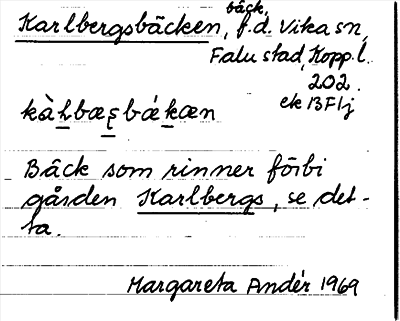 Karlbergsbäcken, bäck, f.d. Vika sn,
Falu stad, Kopp. l.
202
ek 13F1j
Bäck som rinner förbi
gården Karlbergs, se det-
ta.
Margareta Andér 1969